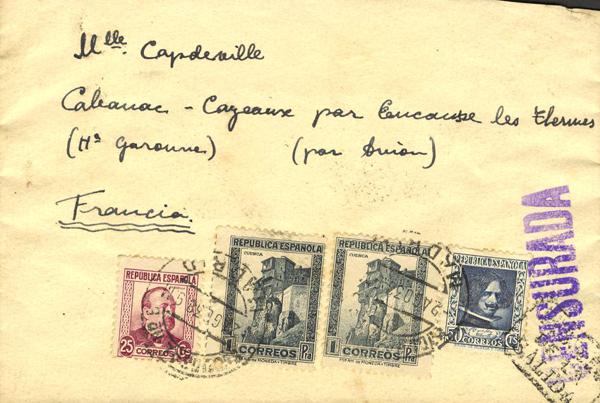 Mlle. Capdeville
Cabanac - Cazeaux par Encausse les Thermes
(Hte Garonne) (par Avion)
Francia.
REPUBLICA ESPAÑOLA
25 CTS
CORREOS
REPUBLICA ESPAÑOLA
CUENCA
1 CORREOS Pta
REPUBLICA ESPAÑOLA
CUENCA
1 CORREOS Pta
REPUBLICA ESPAÑOLA
50 CTS
CORREOS
CENSURADA